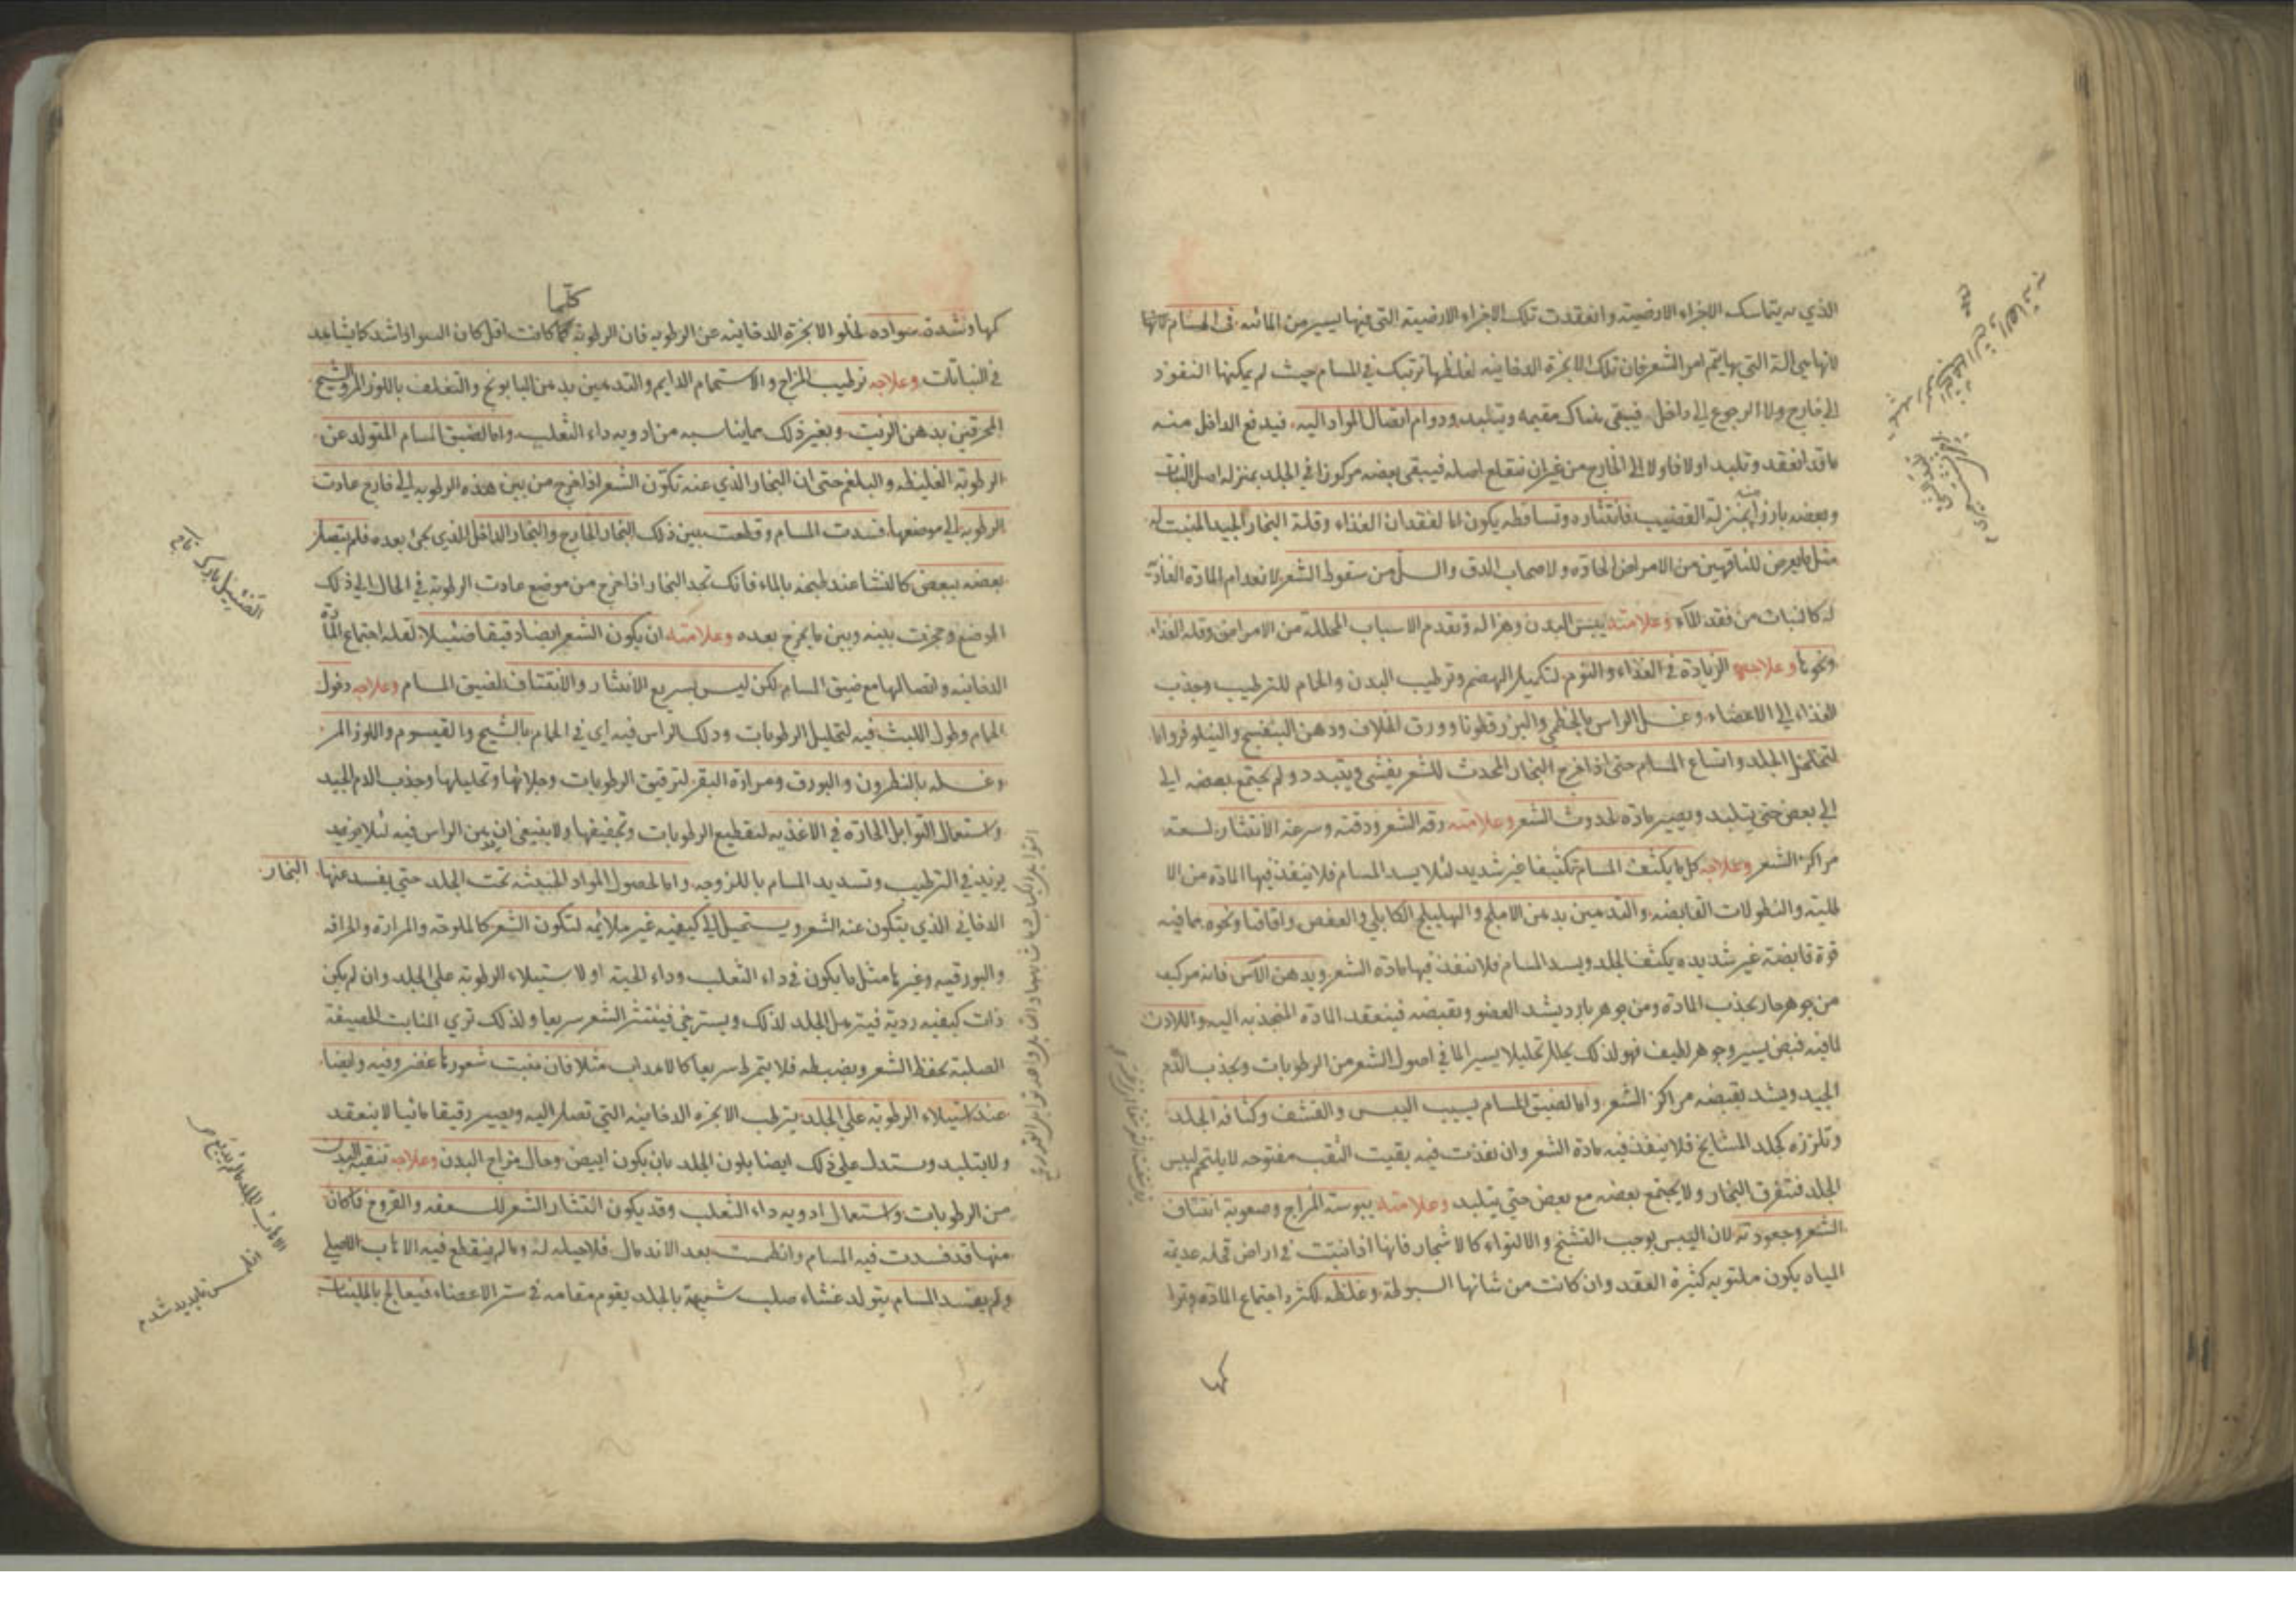 الذي به يتماسك الاجزاء الارضيته وانعقدت تلك الاجزاء الارضيته التي فيها يسير من المائيه في المسام لانها
لانها هي الة التي بها يتم امر الشعر فان تلك الابخرة الدخانيه لغلظها ترتبك في المسام حيث لم يمكنها النفوذ
الي خارج ولا الرجوع الي داخل فيبقي هناك مقيمه ويتلبد ودوام اتصال المواد اليه فيدفع الداخل منه
ما قد انعقد وتلبد اولا فاولا الي الخارج من غير ان ينقلع اصله فيبقي بعضه مركوزا في الجلد بمنزله اصل النبات
وبعضه بارزا منه بمنزلة القضيب فانتثاره وتساقطه يكون اما لفقدان الغذاء وقلة البخار الجيد المنبت له
مثل ما يعرض للناقهين من الامراض الحاده ولاصحاب الدق والسل من سقوط الشعر لانعدام المادة الغاذية
له كالنبات من فقد الماء وعلامته يبس البدن وهزاله وتقدم الاسباب المحللة من الامراض وقلة الغذاء
ونحوها وعلاجه الزيادة في الغذاء والنوم لتكميل الهضم وترطيب البدن والحمام للترطيب وجذب
الغذاء الي الاعضاء وغسل الراس بالخطمي والبزرقطونا وورق الخلاف ودهن البنفسج والنيلوفر واما
لتخلخل الجلد واتساع المسام حتي اذا خرج البخار المحدث للشعر يفشي ويتبدد ولم يجتمع بعضه الي
الي بعض حتي يتلبد ويصير مادة لحدوث الشعر وعلامته رقه الشعر ودقته وسرعة الانتثار لسعة
مراكز الشعر وعلاجه كل ما يكثف المسام تكثيفا غير شديد لئلا يسد المسام فلا ينفذ فيها المادة من الا
طليته والنطولات القابضه والتدهين بدهن الاملج والهليلج الكابلي والعفص واقاقيا ونحوه مما فيه
قوة قابضة غير شديده يكثف الجلد ويسد المسام فلا ينفذ فيها مادة الشعر وبدهن الآس فانه مركب
من جوهر حار يجذب المادة ومن جوهر بارد يشد العضو ويقبضه فينعقد المادة المنجذبه اليه واللاذن
لما فيه قبض يسير وجوهر لطيف فهو لذلك يحلل تحليلا يسيرا لما في اصول الشعر من الرطوبات ويجذب الدم
الجيد ويشد بقبضه مراكز الشعر واما لضيق المسام بسبب اليبس والقشف وكثافة الجلد
وتلززه كجلد المشايخ فلا ينفذ فيه مادة الشعر وان نفذت فيه بقيت الثقب مفتوحه لا يلتحم ليبس
الجلد فيتفرق البخار ولا يجتمع بعضه مع بعض حتي يتلبد وعلامته يبوسته المزاج وصعوبة انتتاف
الشعر وجعودته لان اليبس يوجب التشنج والالتواء كالاشجار فانها اذا نبتت في اراض قحله عديمة
المياه يكون ملتويه كثيرة العقد وان كانت من شانها السبوطة وغلظه لكثرة اجتماع المادة وترا
كها
كلما
كها وشدة سواده لخلو الابخرة الدخانيه عن الرطوبه فان الرطوبة كلما كانت اقل كان السواد اشد كما يشاهد
في النباتات وعلاجه ترطيب المزاج والاستحمام الدايم والتدهين بدهن البابونج والتغلف باللوز المر والشيح
المحرقين بدهن الزيت وبغير ذلك مما يناسبه من ادويه داء الثعلب واما لضيق المسام المتولد عن
الرطوبة الغليظه والبلغم حتي ان البخار الذي عنه تكون الشعر اذا خرج من بين هذه الرطوبه الي خارج عادت
الرطوبه الي موضعها فسدت المسام وقطعت بين ذلك البخار الخارج والبخار الداخل الذي يجئ بعده فلم يتصل
بعضه ببعض كالنشا عند طبخه بالماء فانك تجد البخار اذا خرج من موضع عادت الرطوبة في الحال الي ذلك
الموضع وحجزت بينه وبين ما يخرج بعده وعلامته ان يكون الشعر ايضا دقيقا ضئيلا لقلة اجتماع المادة
الدخانيه واتصالها مع ضيق المسام لكن ليس بسريع الانتثار والانتتاف لضيق المسام وعلاجه دخول
الحمام وطول اللبث فيه لتحليل الرطوبات ودلك الراس فيه اي في الحمام بالشيح والقيسوم واللوز المر
وغسله بالنطرون والبورق ومرارة البقر لترقيق الرطوبات وجلائها وتحليلها وجذب الدم الجيد
واستعمال التوابل الحارة في الاغذيه لتقطيع الرطوبات وتجفيفها ولا ينبغي ان يدهن الراس فيه لئلا يزيد
يزيد في الترطيب وتسديد المسام باللزوجه واما لحصول المواد الخبيثه تحت الجلد حتي يفسد عنها البخار
الدخاني الذي يتكون عنه الشعر ويستحيل الي كيفيه غير ملائمه لتكون الشعر كالملوحة والمرارة والحرافه
والبورقيه وغيرها مثل ما يكون في داء الثعلب وداء الحية او لاستيلاء الرطوبة علي الجلد وان لم يكن
ذات كيفيه رديه فيترهل الجلد لذلك ويسترخي فينتثر الشعر سريعا ولذلك تري المنابت الحصيفة
الصلبة تحفظ الشعر ويضبطه فلا يتمرط سريعا كالاهداب مثلا فان منبت شعورها غضروفيه وايضا
عند استيلاء الرطوبة علي الجلد يترطب الابخره الدخانيه التي تصل اليه ويصير رقيقا مائيا لا ينعقد
ولا يتلبد ويستدل علي ذلك ايضا بلون الجلد بان يكون ابيض وحال مزاج البدن وعلاجه تنقيه البدن
من الرطوبات واستعمال ادويه داء الثعلب وقد يكون انتثار الشعر للسعفه والقروح فما كان
منها قد فسدت فيه المسام وانطمست بعد الاندمال فلا حيله له وما لم ينقطع فيه الاهاب الاصلي
ولم يفسد المسام يتولد غشاء صلب شبيهة بالجلد يقوم مقامه في ستر الاعضاء فيعالج بالملينات